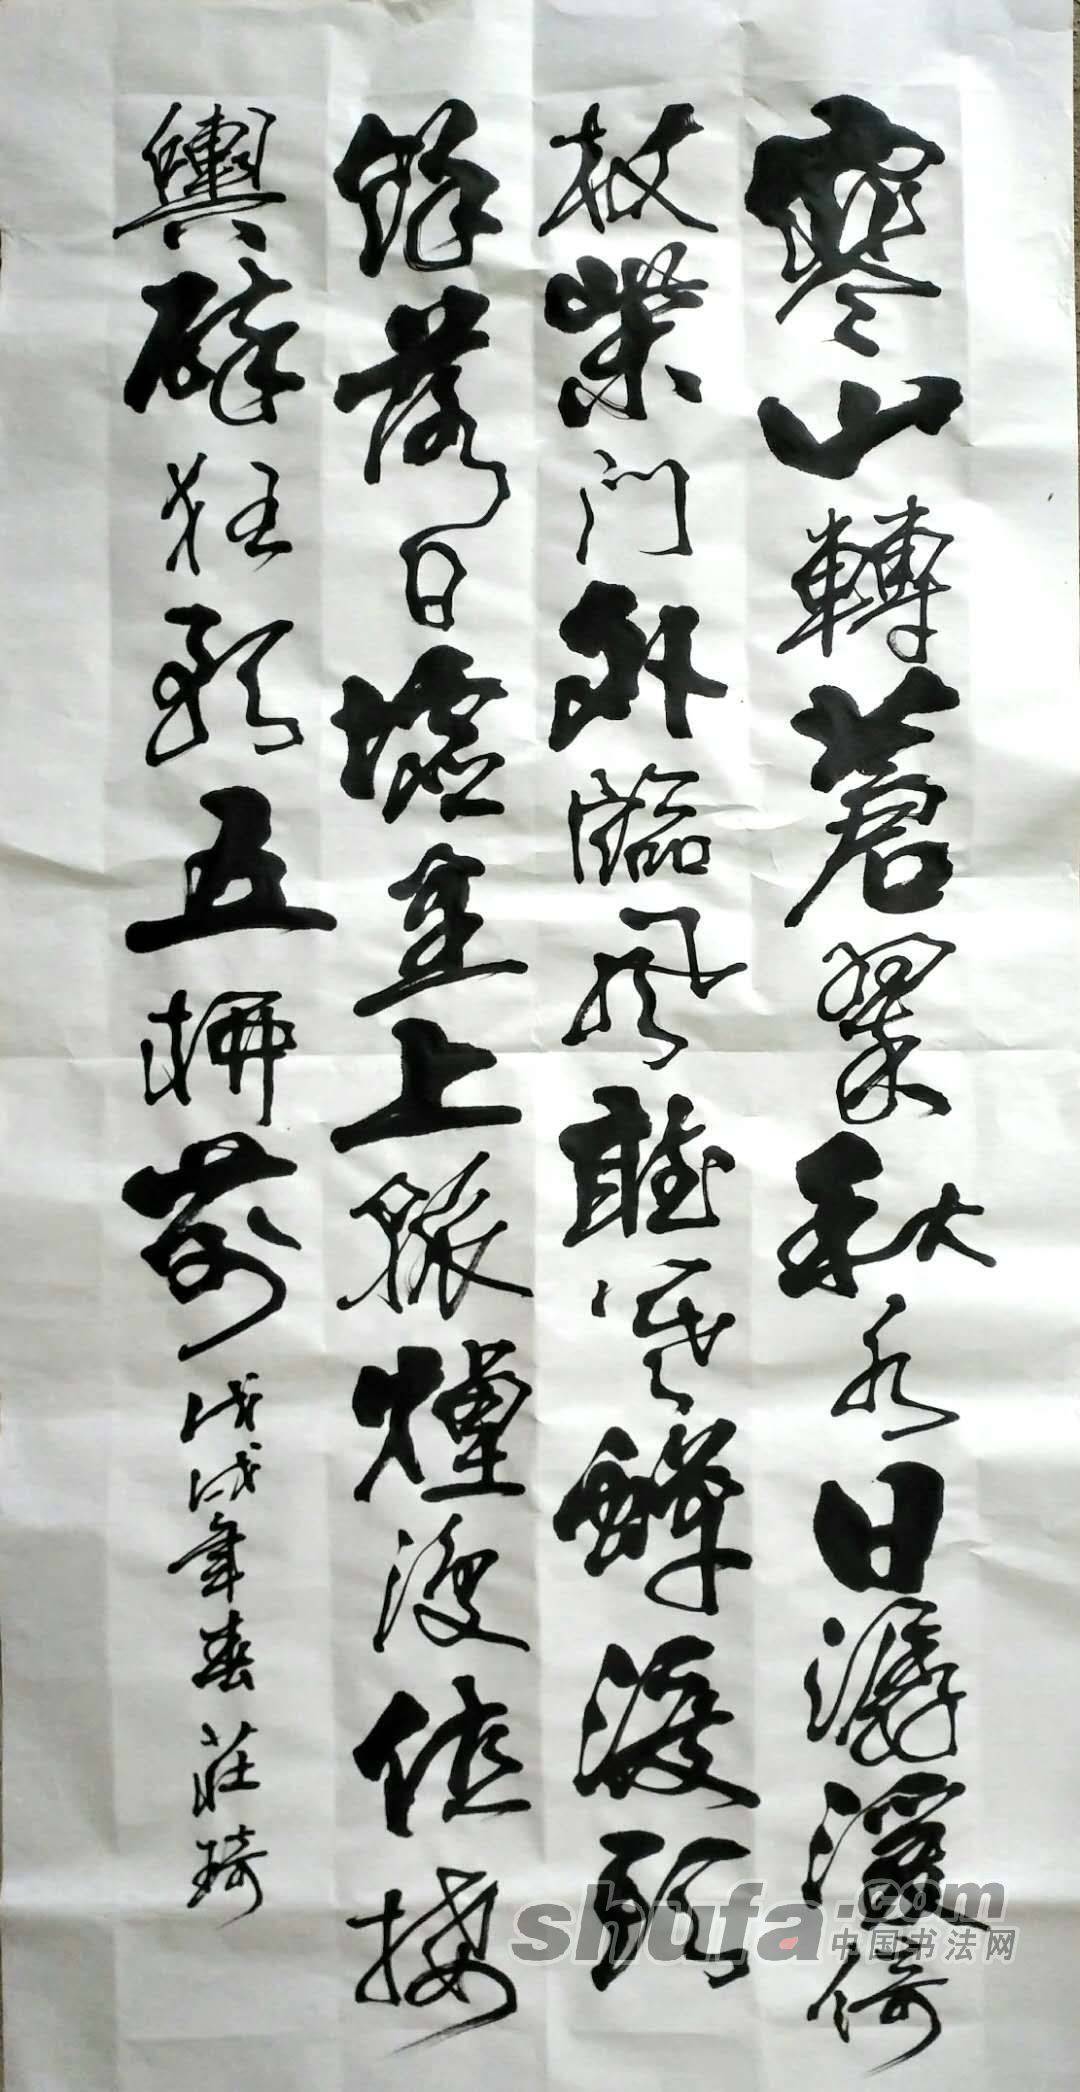 寒山轉蒼翠秋水日潺湲倚
杖柴门外臨風聽暮蟬渡頭
餘落日墟里上孤煙復值接
輿醉狂歌五柳前 戊戌年春 莊琦
shufa.com
中国书法网